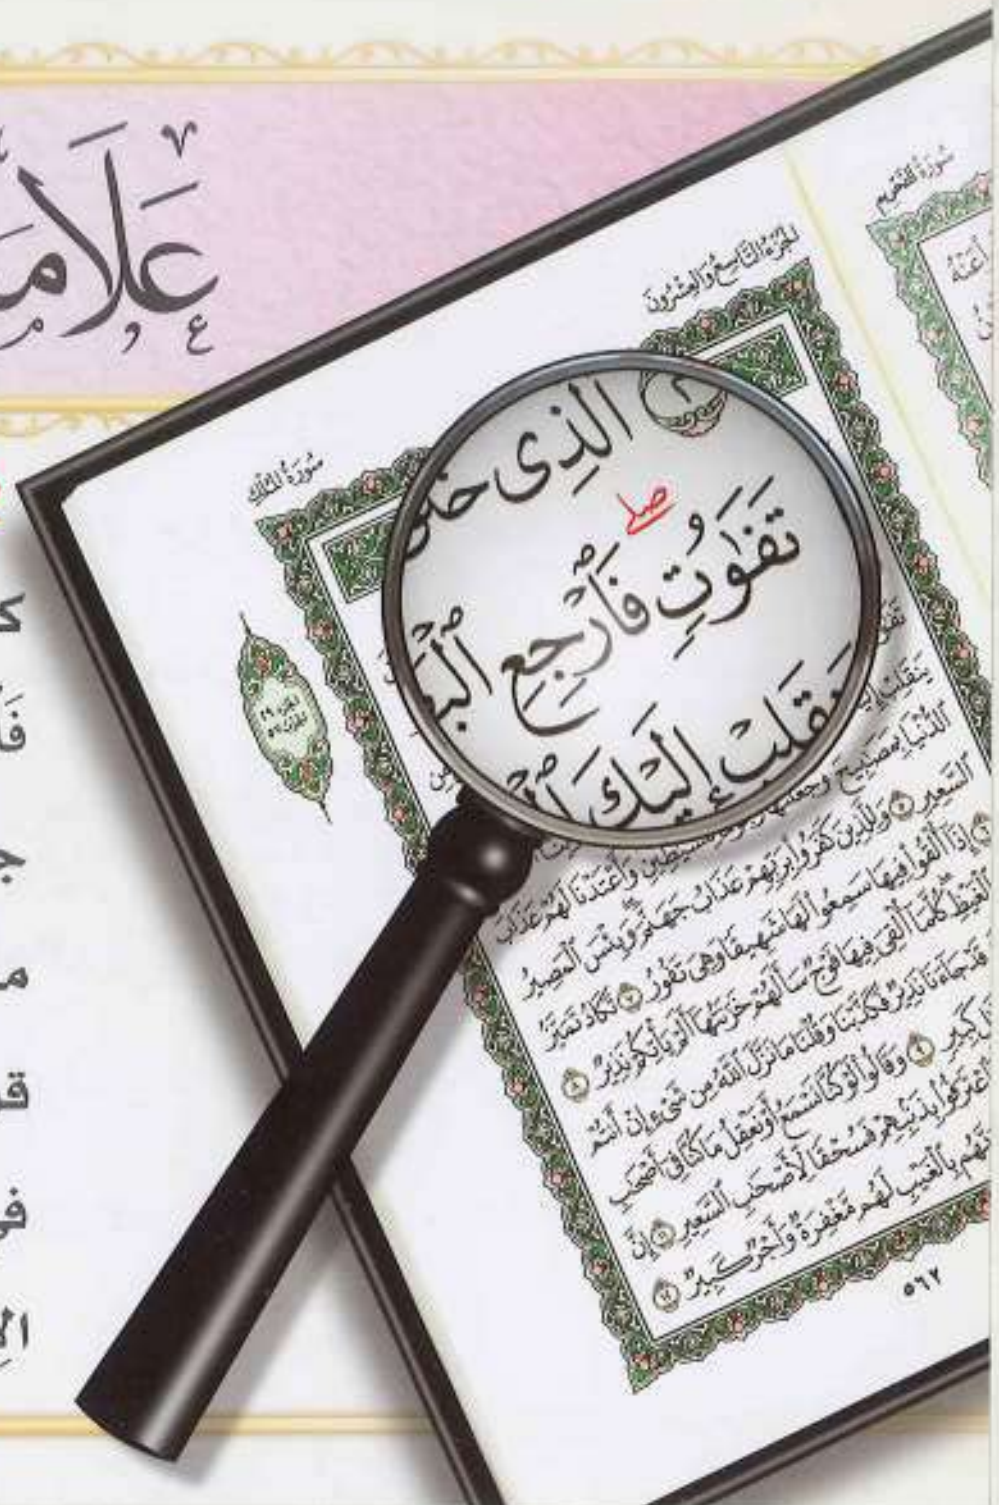 عَلَامَـ
سُورَةُ التَّحْرِيم
أَعۡنَهُ
الجُزْءُ التَّاسِعُ وَالعِشْرُونَ
سُورَةُ المُلْك
الَّذِى خَلَقَ
صلے
تَفَٰوُتٖۖ فَٱرۡجِعِ ٱلۡبَـ
يَنقَلِبۡ إِلَيۡكَ ٱلۡـ
ٱلدُّنۡيَا بِمَصَٰبِيحَ وَجَعَلۡنَٰهَا لِّلشَّيَٰطِينِۖ وَأَعۡتَدۡنَا لَهُمۡ عَذَابَ
ٱلسَّعِيرِ ٥ وَلِلَّذِينَ كَفَرُواْ بِرَبِّهِمۡ عَذَابُ جَهَنَّمَۖ وَبِئۡسَ ٱلۡمَصِيرُ
٦ إِذَآ أُلۡقُواْ فِيهَا سَمِعُواْ لَهَا شَهِيقٗا وَهِيَ تَفُورُ ٧ تَكَادُ تَمَيَّزُ
ٱلۡغَيۡظِۖ كُلَّمَآ أُلۡقِيَ فِيهَا فَوۡجٞ سَأَلَهُمۡ خَزَنَتُهَآ أَلَمۡ يَأۡتِكُمۡ نَذِيرٞ ٨
قَدۡ جَآءَنَا نَذِيرٞ فَكَذَّبۡنَا وَقُلۡنَا مَا نَزَّلَ ٱللَّهُ مِن شَيۡءٍ إِنۡ أَنتُمۡ
كَبِيرٖ ٩ وَقَالُواْ لَوۡ كُنَّا نَسۡمَعُ أَوۡ نَعۡقِلُ مَا كُنَّا فِيٓ أَصۡحَٰبِ
ٱعۡتَرَفُواْ بِذَنۢبِهِمۡ فَسُحۡقٗا لِّأَصۡحَٰبِ ٱلسَّعِيرِ ١١ إِنَّ
رَبَّهُم بِٱلۡغَيۡبِ لَهُم مَّغۡفِرَةٞ وَأَجۡرٞ كَبِيرٞ ١٢
٥٦٢